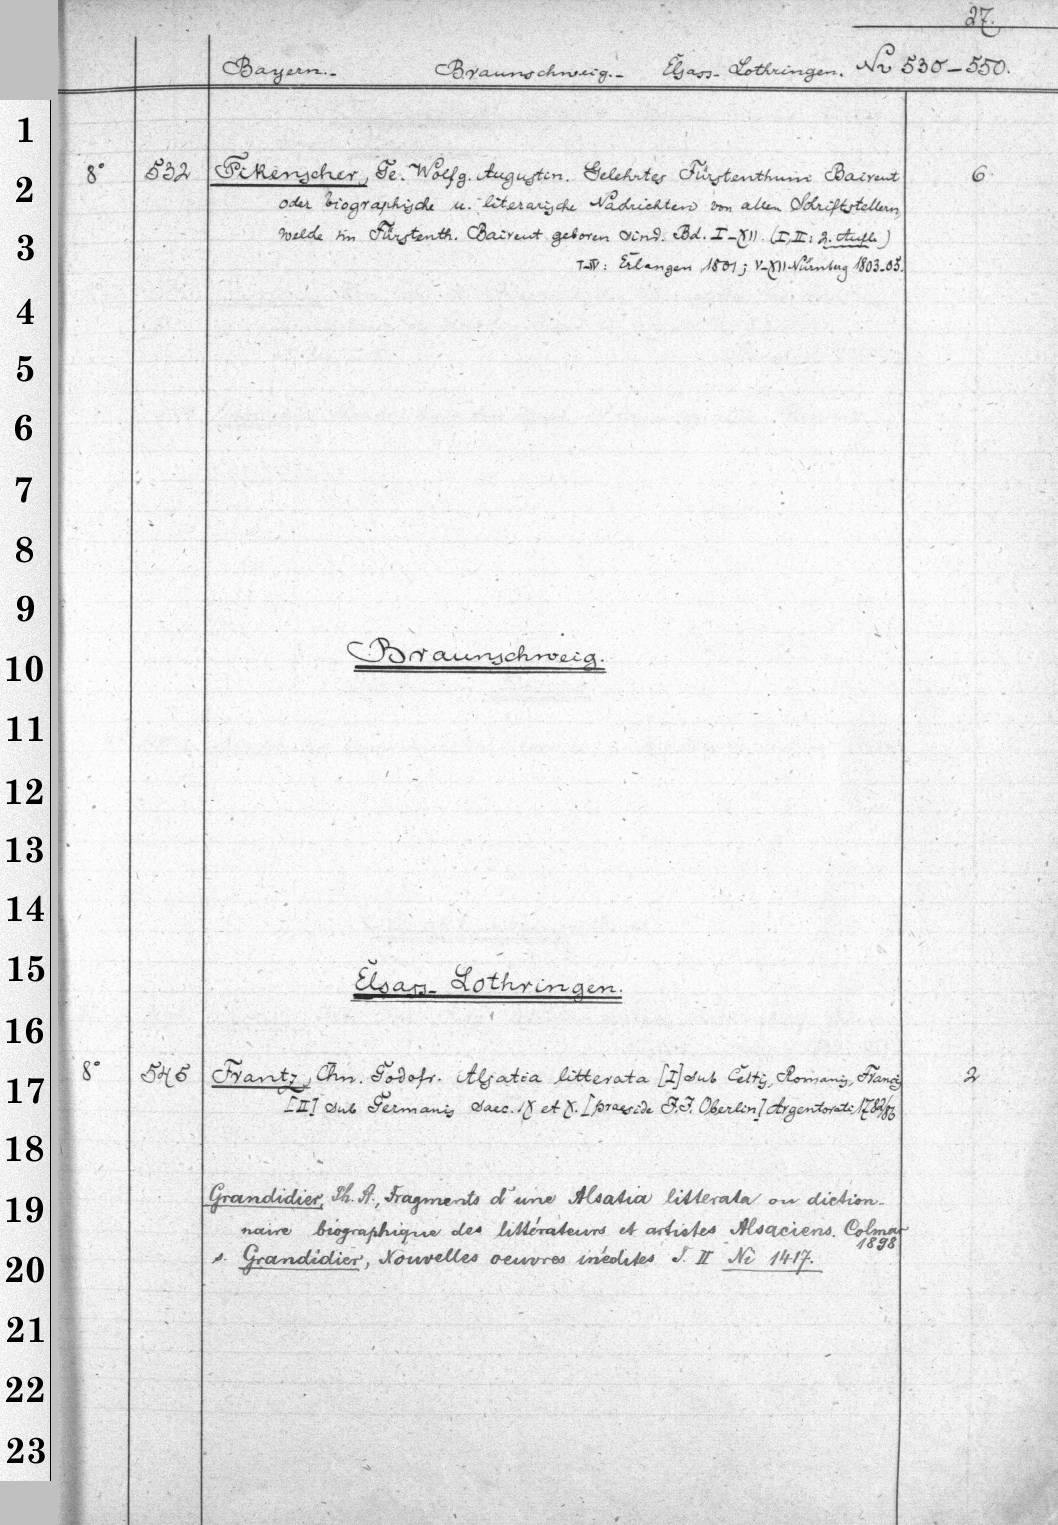 27.
Bayern.- Braunschweig.- Elsass-Lothringen. No 530-550.
1
8° 532 Fikenscher, Ge. Wolfg. Augustin. Gelehrtes Fürstenthum Baireut 6
2
oder biographische u. literarische Nachrichten von allen Schriftstellern,
3
welche im Fürstenth. Baireut geboren sind. Bd. I-XII. (I, II: 2. Aufl.)
I-IV: Erlangen 1801; V-XII Nürnberg 1803-05.
4
5
6
7
8
9
Braunschweig.
10
11
12
13
14
15
Elsass-Lothringen.
16
8° 545 Frantz, Chn. Godofr. Alsatia litterata [I] sub Celtis, Romanis, Francis 2
17
[II] sub Germanis saec. IX et X. [praeside J.J. Oberlin] Argentorati 1782/86
18
Grandidier, Ph. A., Fragments d'une Alsatia litterata ou diction-
19
naire biographique des littérateurs et artistes Alsaciens. Colmar
1898
s. Grandidier, Nouvelles oeuvres inédites T. II No 1417.
20
21
22
23